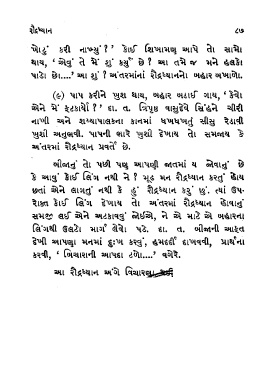 રૌદ્રધ્યાન ૮૭
ખોટું કરી નાખ્યું ? ' કોઈ શિખામણ આપે તો સામો
થાય, 'એવું તે મેં શું કર્યું છે ? આ તમે જ મને હલકો
પાડો છો....' આ શું ? અંતરમાંના રૌદ્રધ્યાનનો બહાર બખાળો.
(૯) પાપ કરીને ખુશ થાય, બહાર બડાઈ ગાય, 'કેવો
એને મેં ફટકાર્યો ? ' દા. ત. ત્રિપૃષ્ઠ વાસુદેવે સિંહને ચીરી
નાખી અને શય્યાપાલકના કાનમાં ધખધખતું સીસુ રેડાવી
ખુશી અનુભવી. પાપની ભારે ખુશી દેખાય તો સમજાય કે
અંતરમાં રૌદ્રધ્યાન પ્રવર્તે છે.
બીજાનું તો પછી પણ આપણી જાતમાં ય જોવાનું છે
કે આવું કોઈ લિંગ નથી ને ? મૂઢ મન રૌદ્રધ્યાન કરતું હોય
છતાં એને લાગતું નથી કે હું રૌદ્રધ્યાન કરું છું. ત્યાં ઉપ-
રોક્ત કોઈ લિંગ દેખાય તો અંતરમાં રૌદ્રધ્યાન હોવાનું
સમજી લઈ એને અટકાવવું જોઈએ, ને એ માટે એ બહારના
લિંગથી ઉલટો માર્ગ લેવો પડે. દા. ત. બીજાની આફત
દેખી આપણા મનમાં દુઃખ કરવું, હમદર્દી દાખવવી, પ્રાર્થના
કરવી, 'બિચારાની આપદા ટળો....' વગેરે.
આ રૌદ્રધ્યાન અંગે વિચારણા થઈ